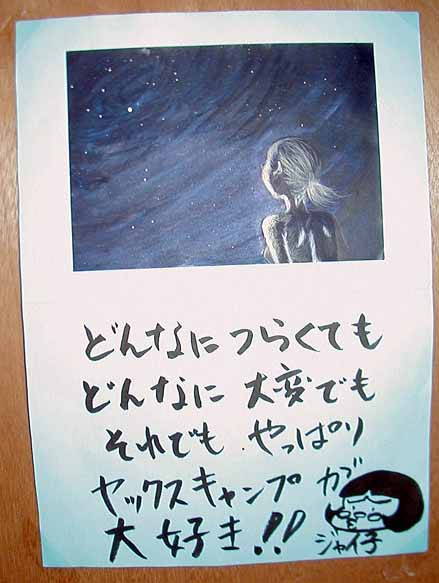 どんなにつらくても
どんなに大変でも
それでも やっぱり
ヤックスキャンプが
大好き!!
ジャイ子